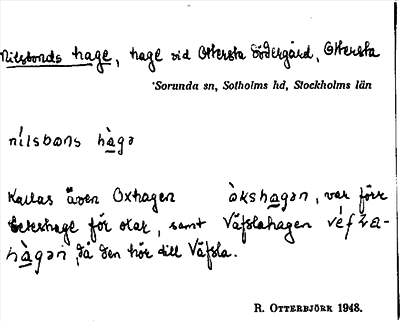 Nilsbonds hage, hage vid Ottersta Södergård, Ottersta
Sorunda sn, Sotholms hd, Stockholms län
nílsbɷns hàgə
Kallas även Oxhagen àkshagən, var förr
beteshage för oxar, samt Väfslahagen
hàgən, då den hör till Väfsla.
R. OTTERBJÖRK 1948.